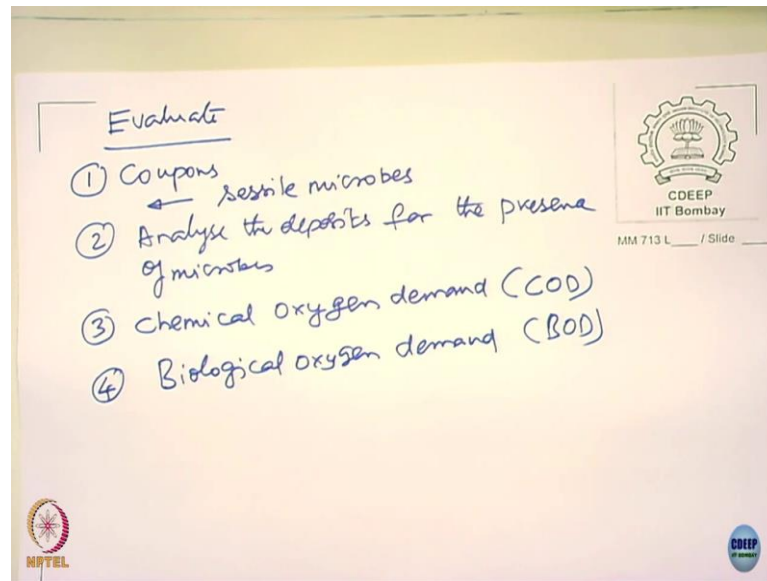 Evaluate
① Coupons
← sessile microbes
② Analyse the deposits for the presene
of microbes
③ Chemical oxygen demand (COD)
④ Biological oxygen demand (BOD)
CDEEP
IIT Bombay
MM 713 L___ / Slide ___
NPTEL
CDEEP
IIT BOMBAY